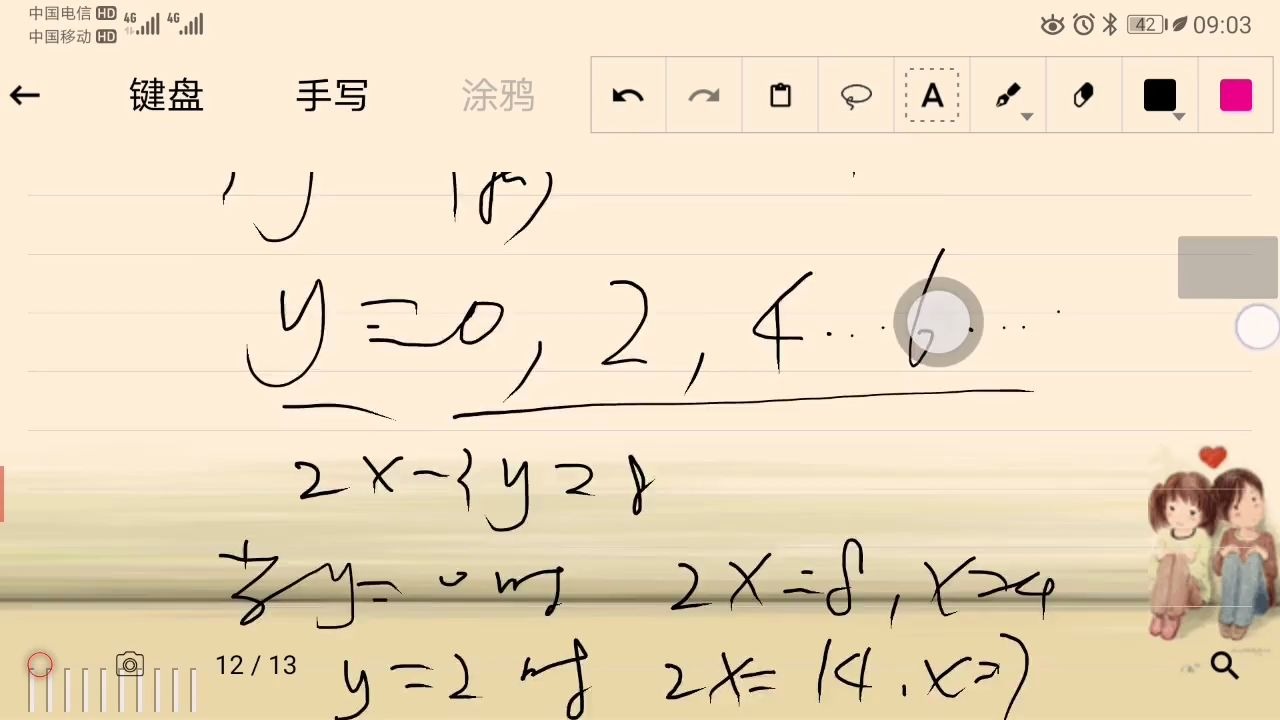 中国电信 HD 4G 4G 42 09:03
中国移动 HD
键盘 手写 涂鸦 A
y=0, 2, 4······6······
2x-3y=8
当y=0时 2x=8, x=4
12 / 13
y=2时 2x=14, x=7